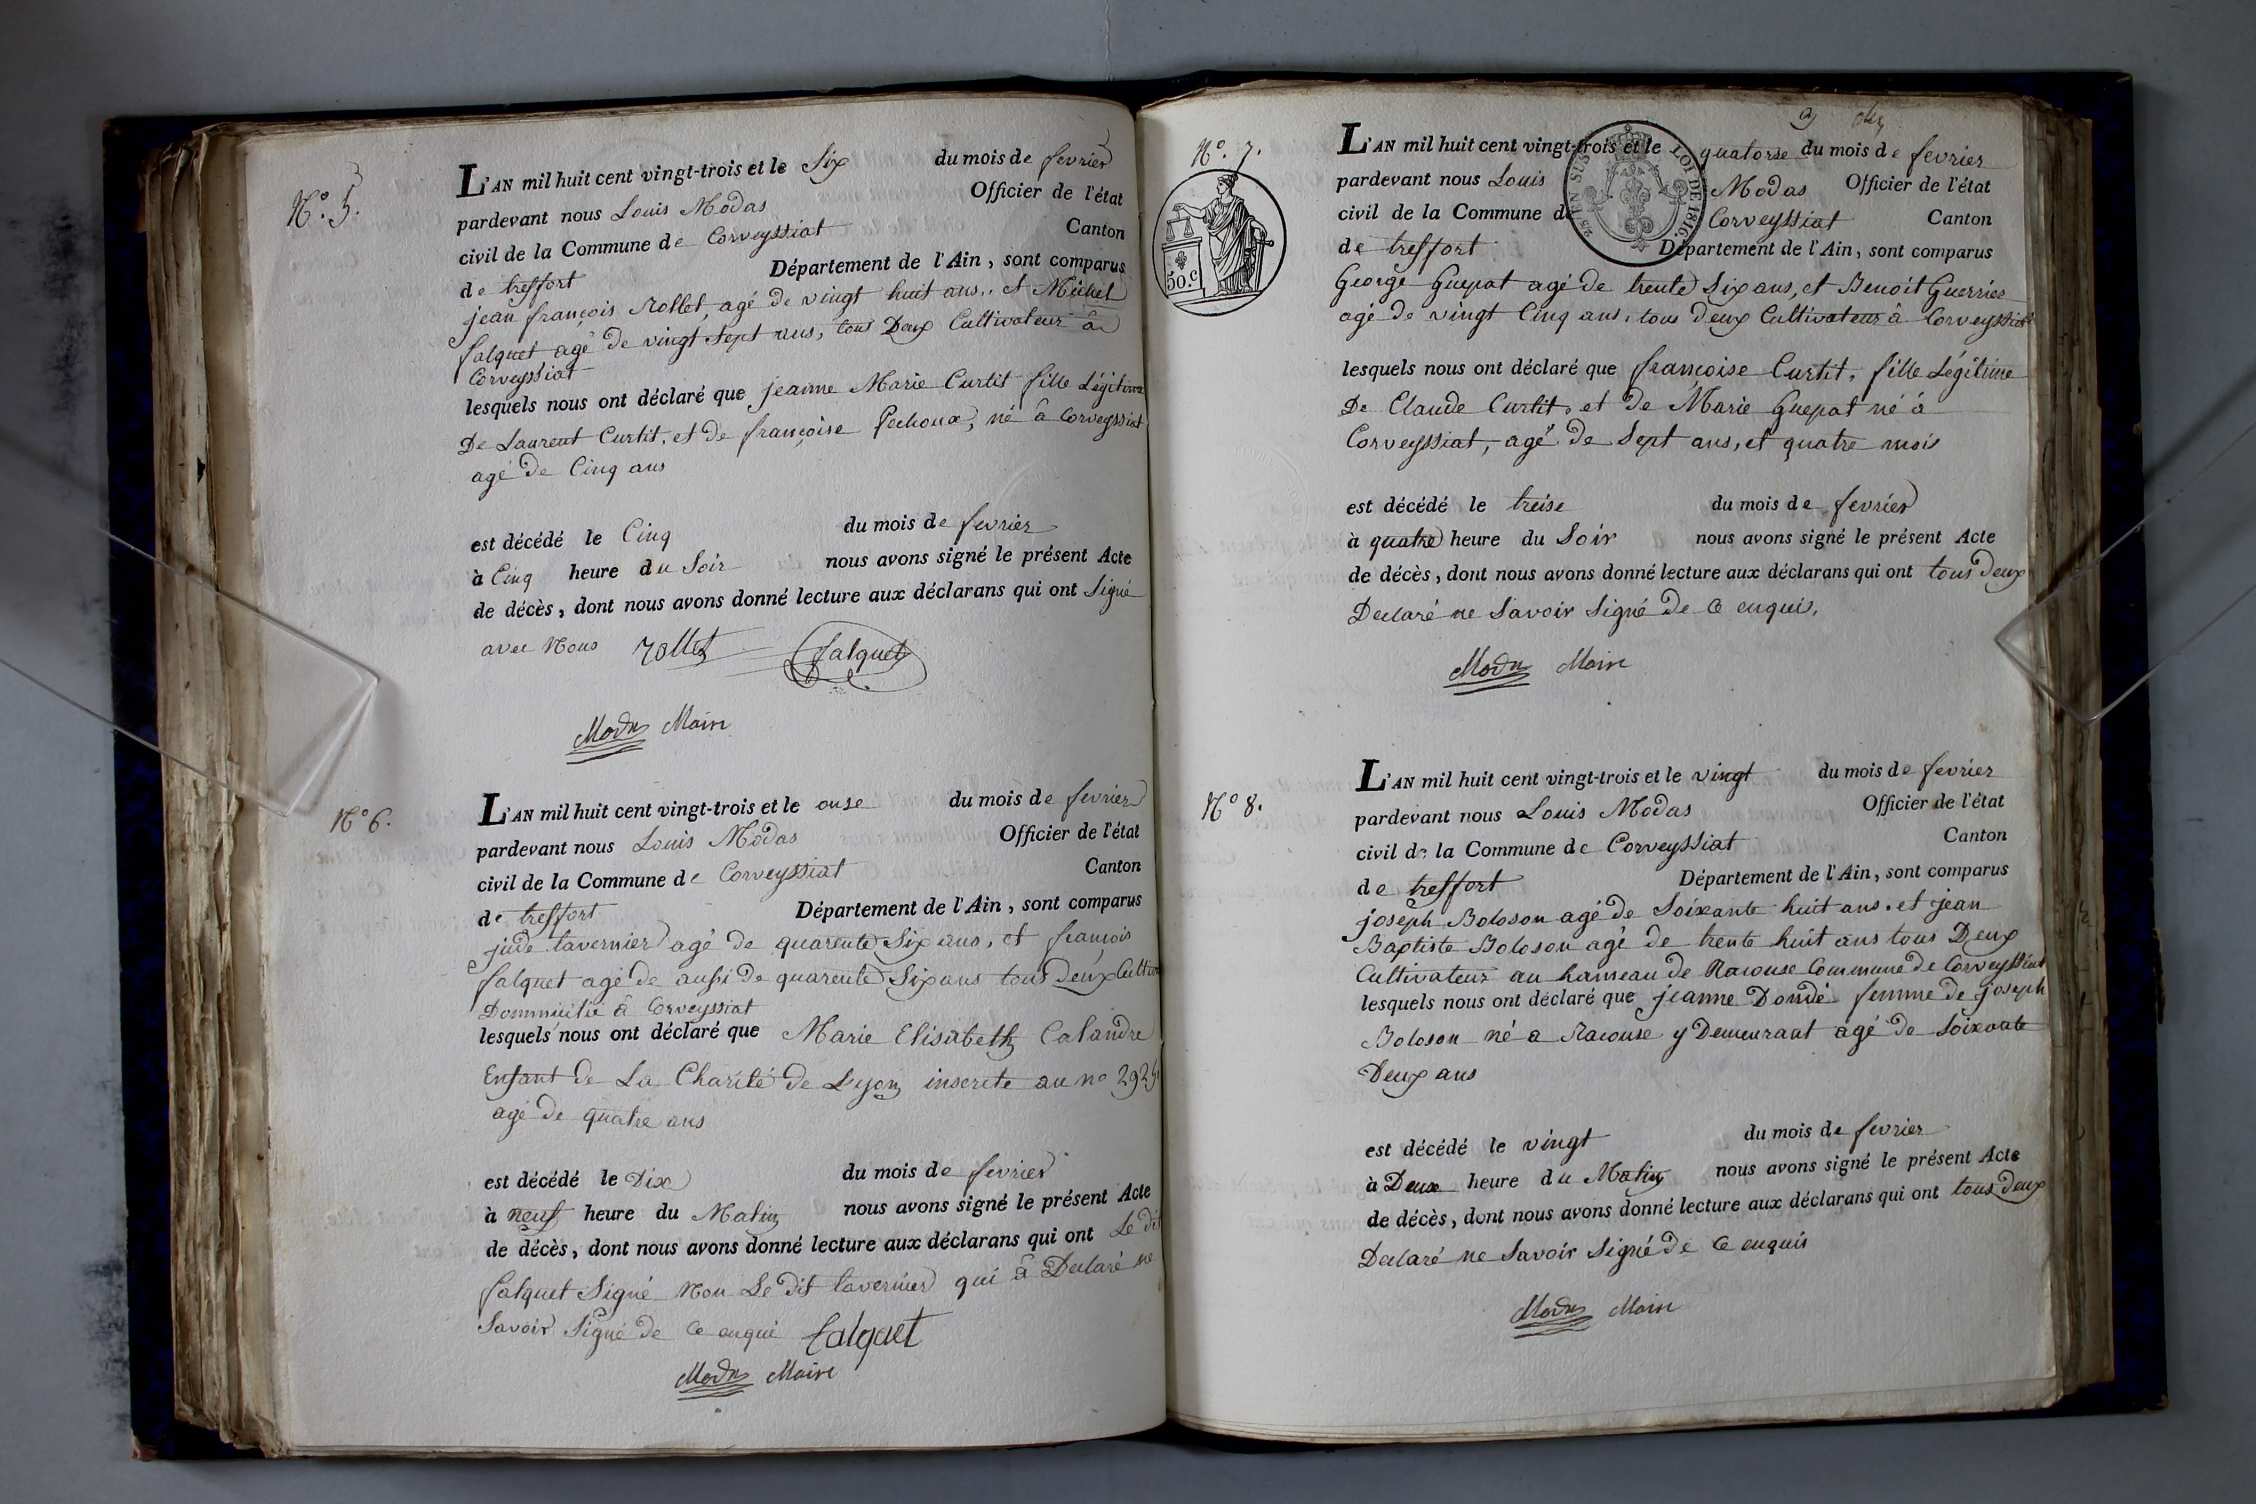 N.º 5.
L'AN mil huit cent vingt-trois et le Six du mois de fevrier
pardevant nous Louis Modas Officier de l'état
civil de la Commune de Corveyssiat Canton
de treffort Département de l'Ain, sont comparus
jean françois Rollet, agé de vingt huit ans, et Michel
falquet agé de vingt Sept ans, tous Deux Cultivateur â
Corveyssiat
lesquels nous ont déclaré que jeanne Marie Curtit fille Légitime
De Laurent Curtit, et de françoise Pechoux, né â Corveyssiat
agé de Cinq ans
est décédé le Cinq du mois de fevrier
à Cinq heure du Soir nous avons signé le présent Acte
de décès, dont nous avons donné lecture aux déclarans qui ont Signé
avec Nous rollet falquet
Modas Maire
Nº 6.
L'AN mil huit cent vingt-trois et le onse du mois de fevrier
pardevant nous Louis Modas Officier de l'état
civil de la Commune de Corveyssiat Canton
de treffort Département de l'Ain, sont comparus
jude tavernier agé de quarente Six ans, et françois
falquet agé de aussi de quarente Six ans tous deux Cultiv
Dommicilié â Corveyssiat
lesquels nous ont déclaré que Marie Elisabeth Calandre
Enfant de La Charité de Lyon inscrite au nº
agé de quatre ans
est décédé le Dix du mois de fevrier
à neuf heure du Matin nous avons signé le présent Acte
de décès, dont nous avons donné lecture aux déclarans qui ont Le dit
falquet Signé Non Le dit tavernier qui â Declaré ne
Savoir Signé de Ce enqui falquet
Modas Maire
N.º 7.
50 c.
25 EN SUS
LOI DE 1816.
L'AN mil huit cent vingt-trois et le quatorse du mois de fevrier
pardevant nous Louis Modas Officier de l'état
civil de la Commune de Corveyssiat Canton
de treffort Département de l'Ain, sont comparus
George Guepat agé de trente Six ans, et Benoit Guerrier
agé de vingt Cinq ans, tous deux Cultivateur â Corveyssiat
lesquels nous ont déclaré que françoise Curtit, fille Légitime
De Claude Curtit, et de Marie Guepat né â
Corveyssiat, agé de Sept ans, et quatre mois
est décédé le treise du mois de fevrier
à quatre heure du Soir nous avons signé le présent Acte
de décès, dont nous avons donné lecture aux déclarans qui ont tous deux
Declaré ne Savoir Signé de Ce enquis,
Modas Maire
Nº 8.
L'AN mil huit cent vingt-trois et le vingt du mois de fevrier
pardevant nous Louis Modas Officier de l'état
civil de la Commune de Corveyssiat Canton
de treffort Département de l'Ain, sont comparus
joseph Boloson agé de Soixante huit ans, et jean
Baptiste Boloson agé de trente huit ans tous Deux
Cultivateur au hameau de Racouse Commune de Corveyssiat
lesquels nous ont déclaré que jeanne Dondé femme de joseph
Boloson né a Racouse y Demeurant agé de Soixante
Deux ans
est décédé le vingt du mois de fevrier
à Deux heure du Matin nous avons signé le présent Acte
de décès, dont nous avons donné lecture aux déclarans qui ont tous deux
Declaré ne Savoir Signé de Ce enquis
Modas Maire